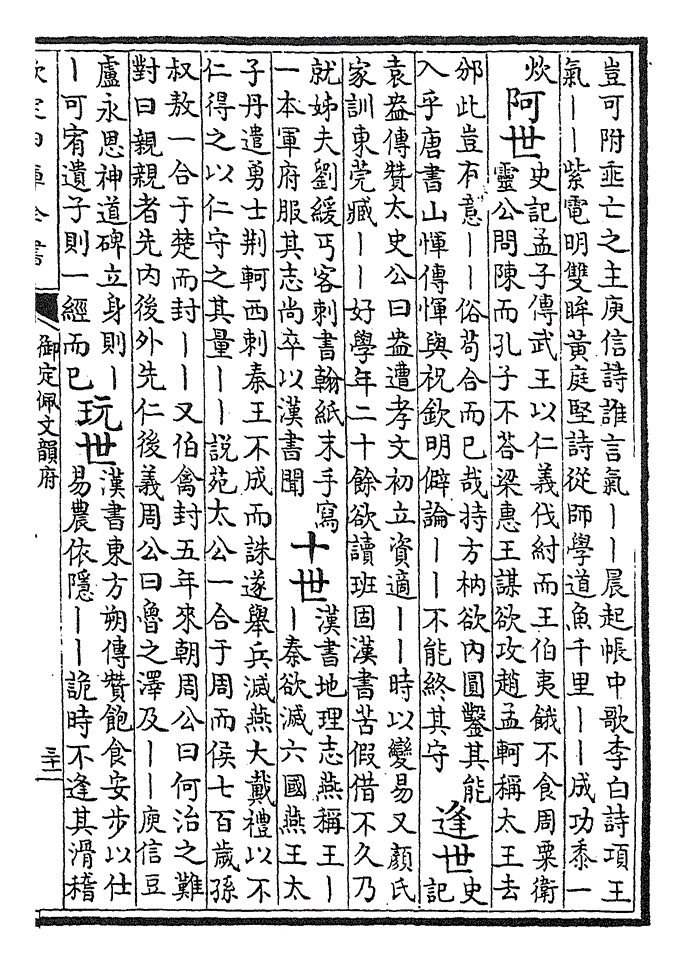 豈可附亟亡之主庾信詩誰言氣丨丨晨起帳中歌李白詩項王
氣丨丨紫電明雙眸黃庭堅詩從師學道魚千里丨丨成功黍一
炊
阿世
史記孟子傳武王以仁義伐紂而王伯夷餓不食周粟衛
靈公問陳而孔子不荅梁惠王謀欲攻趙孟軻稱太王去
邠此豈有意丨丨俗苟合而已哉持方枘欲内圓鑿其能
入乎唐書山惲傳惲與祝欽明僻論丨丨不能終其守
逢世
史
記
袁盎傳贊太史公曰盎遭孝文初立資適丨丨時以變易又顔氏
家訓東莞臧丨丨好學年二十餘欲讀班固漢書苦假借不久乃
就姊夫劉緩丐客刺書翰紙末手寫
一本軍府服其志尚卒以漢書聞
十世
漢書地理志燕稱王丨
丨秦欲滅六國燕王太
子丹遣勇士荆軻西刺秦王不成而誅遂舉兵滅燕大戴禮以不
仁得之以仁守之其量丨丨説苑太公一合于周而侯七百歲孫
叔敖一合于楚而封丨丨又伯禽封五年來朝周公曰何治之難
對曰親親者先内後外先仁後義周公曰魯之澤及丨丨庾信豆
盧永恩神道碑立身則丨
丨可宥遺子則一經而已
玩世
漢書東方朔傳贊飽食安步以仕
易農依隱丨丨詭時不逢其滑稽
欽定四庫全書
御定佩文韻府
三十二